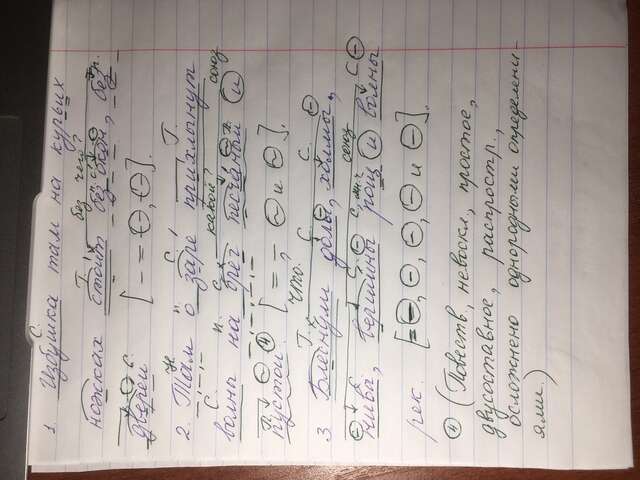 1. Избушка там на курьих
ножках стоит без окон, без
дверей [ – = ⊖, ⊖ ].
2. Там о заре прихлынут
волны на брег песчаный и
пустой. ④ [ = – ⊖ и ⊖ ].
3. Блеснули долы, холмы,
нивы, вершины рощ и волны
рек. [ = ⊖, ⊖, ⊖, ⊖ и ⊖ ].
④ (Повеств, невоскл, простое,
двусоставное, распростр.,
осложнено однородными определени-
ями.)